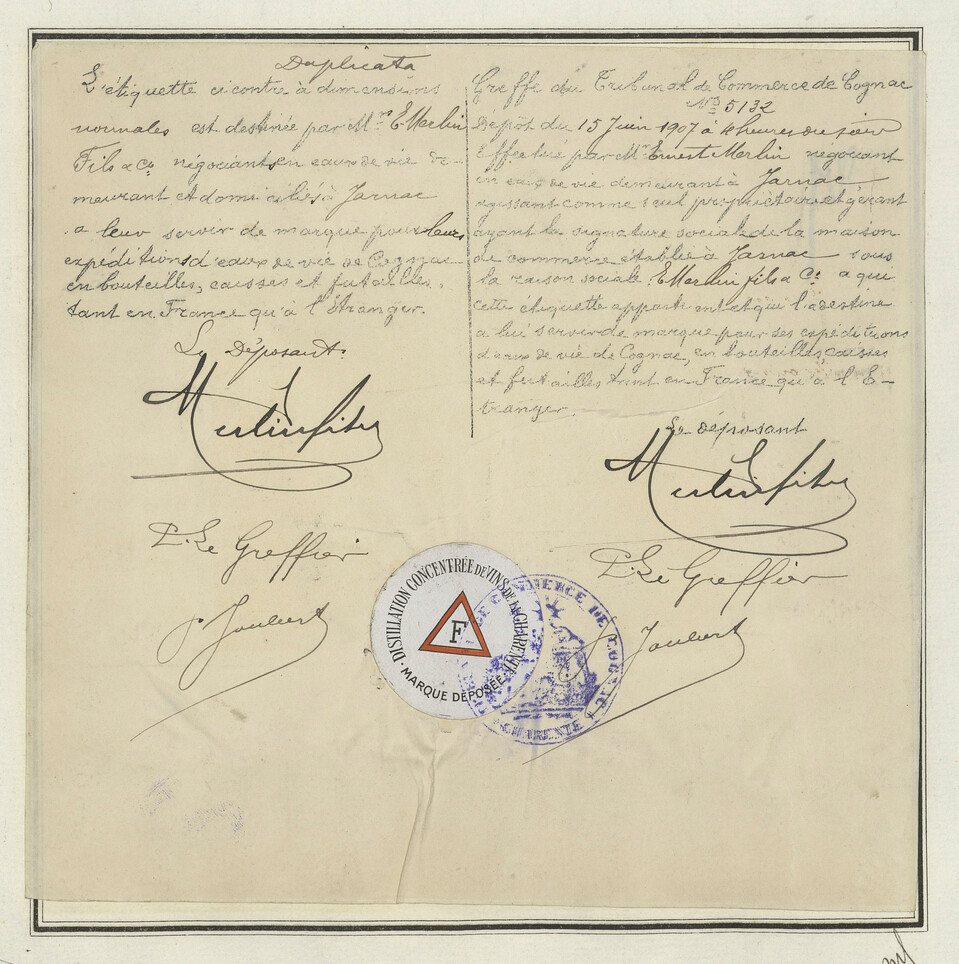 Duplicata
L'étiquette ci contre à dimensions
normales est destinée par Mr. E. Merlin
Fils & Co négociants en eaux de vie de-
meurant et domiciliés à Jarnac
a leur servir de marque pour leurs
expéditions d'eaux de vie de Cognac
en bouteilles, caisses et futailles,
tant en France qu'à l'étranger.
Le Déposant.
Merlin fils
P. Le Greffier
P. Joubert
Greffe du Tribunal de Commerce de Cognac
No 5132
Dépôt du 15 Juin 1907 à 4 heures du soir
Effectué par Mr. Ernest Merlin négociant
en eaux de vie demeurant à Jarnac
agissant comme seul propriétaire et gérant
ayant la signature sociale de la maison
de commerce établie à Jarnac sous
la raison sociale: E Merlin fils & Co. a qui
cette étiquette appartient et qui l'a destine
a lui servir de marque pour ses expéditions
d'eaux de vie de Cognac, en bouteilles, caisses
et futailles tant en France qu'à l'É-
tranger.
Le déposant
Merlin fils
P. Le Greffier
Joubert
DISTILLATION CONCENTRÉE DE VINS DE LA CHARENTE
F
MARQUE DÉPOSÉE
DE COGNAC
CHARENTE